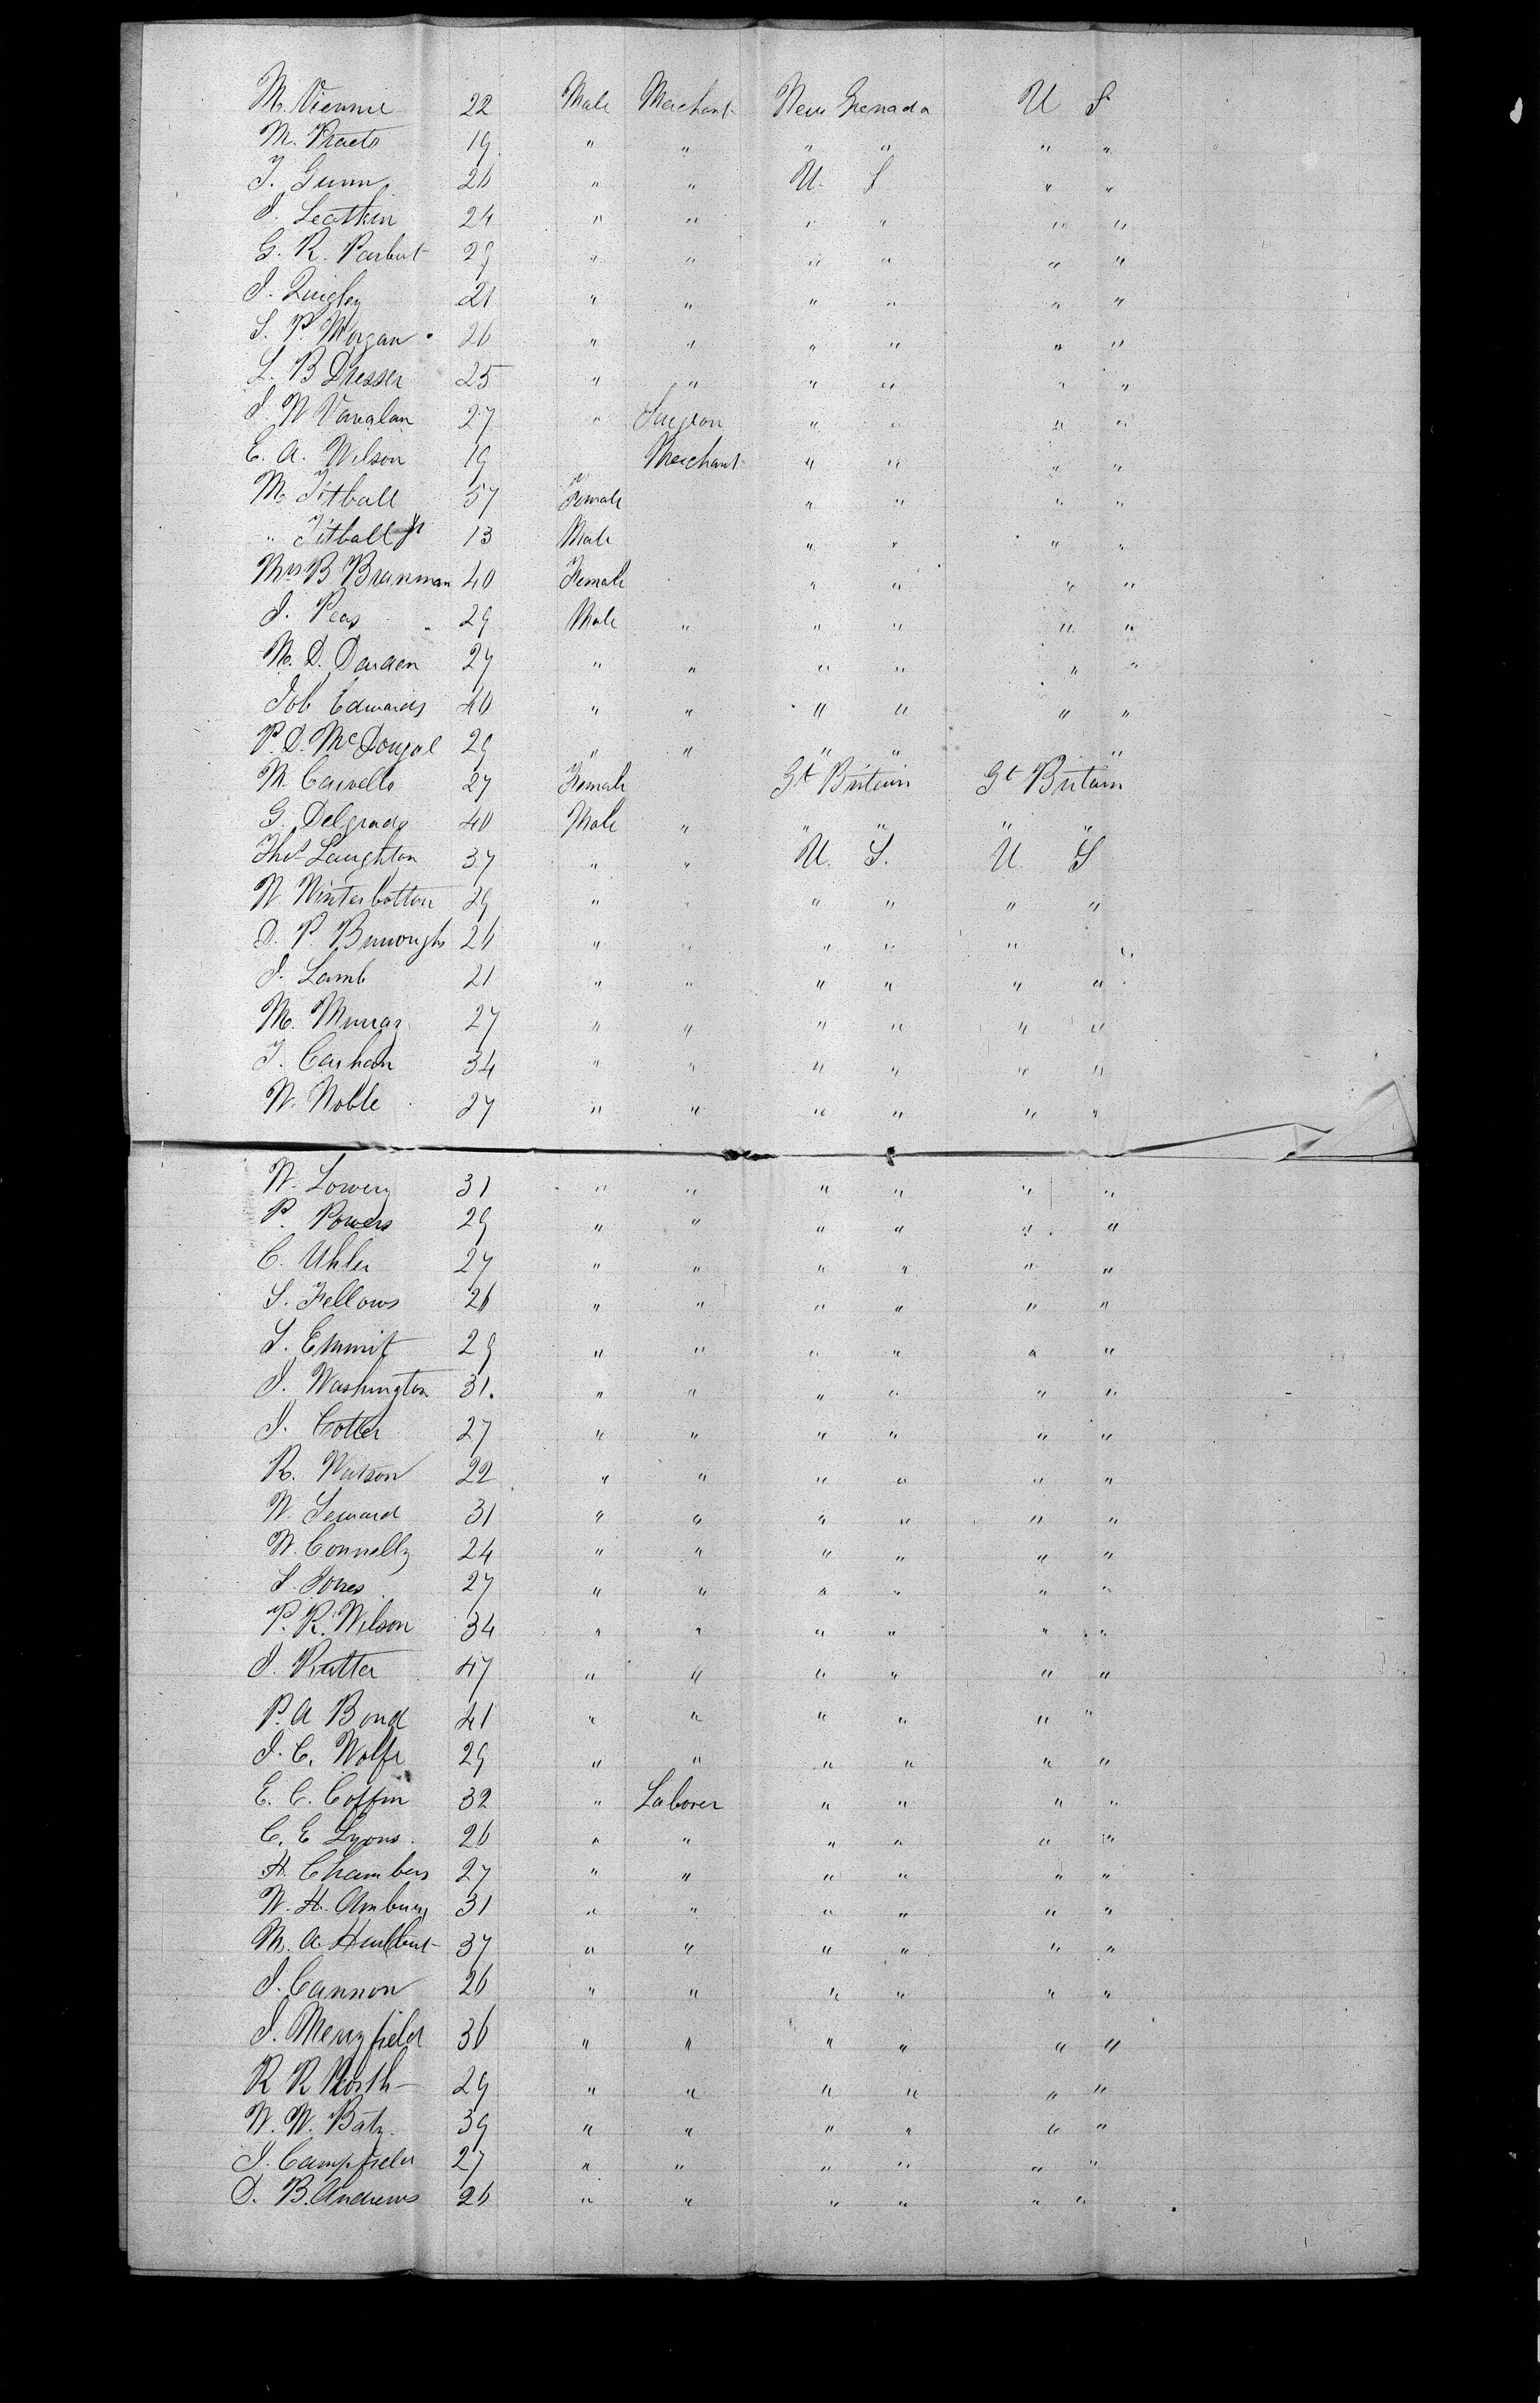 M. Viennie 22 Male Merchant New Grenada U S
M. Praeto 19 " " " " " "
J. Gunn 26 " " U. S " "
J. Leathen 24 " " " " " "
G. R. Parbut 29 " " " " " "
J. Quigley 21 " " " " " "
S. P. Morgan 26 " " " " " "
L. B Dresser 25 " " " " " "
J. W 27 " Surgeon " " " "
E. A. Wilson 19 Merchant " " " "
M. Titball 57 Female " " " "
" Titball Jr 13 Male " " " "
Mrs B Branman 40 Female " " " "
J. Peas 29 Male " " " " "
M. D. Darden 27 " " " " " "
Job Edwards 40 " " " " " "
P. D. McDougal 29 " " " " "
M. Carvello 27 Female Gt Britain Gt Britain
G. Delgrado 40 Male " " " " "
Thos Laughton 37 " " U. S. U. S
W Winterbottom 29 " " " " " "
D. P. Burroughs 26 " " " " " "
J. Lamb 21 " " " " " "
M. Murray 27 " " " " " "
J. Cashan 34 " " " " " "
W. Noble 27 " " " " " "
W. Lowery 31 " " " " " "
P. Powers 29 " " " " " "
C. Uhler 27 " " " " " "
S. Fellows 26 " " " " " "
S. Emmit 29 " " " " " "
J. Washington 31. " " " " " "
J. Cotter 27 " " " " " "
R. Watson 22 " " " " " "
W. Seward 31 " " " " " "
W. Connelly 24 " " " " " "
S. Jones 27 " " " " " "
P. R. Wilson 34 " " " " " "
J. Rutter 47 " " " " " "
P. A Bond 41 " " " " " "
J. C. Wolfe 29 " " " " " "
E. C. Coffin 32 " Laborer " " " "
C. E Lyons. 26 " " " " " "
H. Chambers 27 " " " " " "
W. H. Ambury 31 " " " " " "
M. A. Hurlbut 37 " " " " " "
J. Cannon 26 " " " " " "
J. Merryfield 36 " " " " " "
R R North 29 " " " " " "
W. W. Baty. 39 " " " " " "
J. Campfield 27 " " " " " "
D. B. Andrews 26 " " " " " "